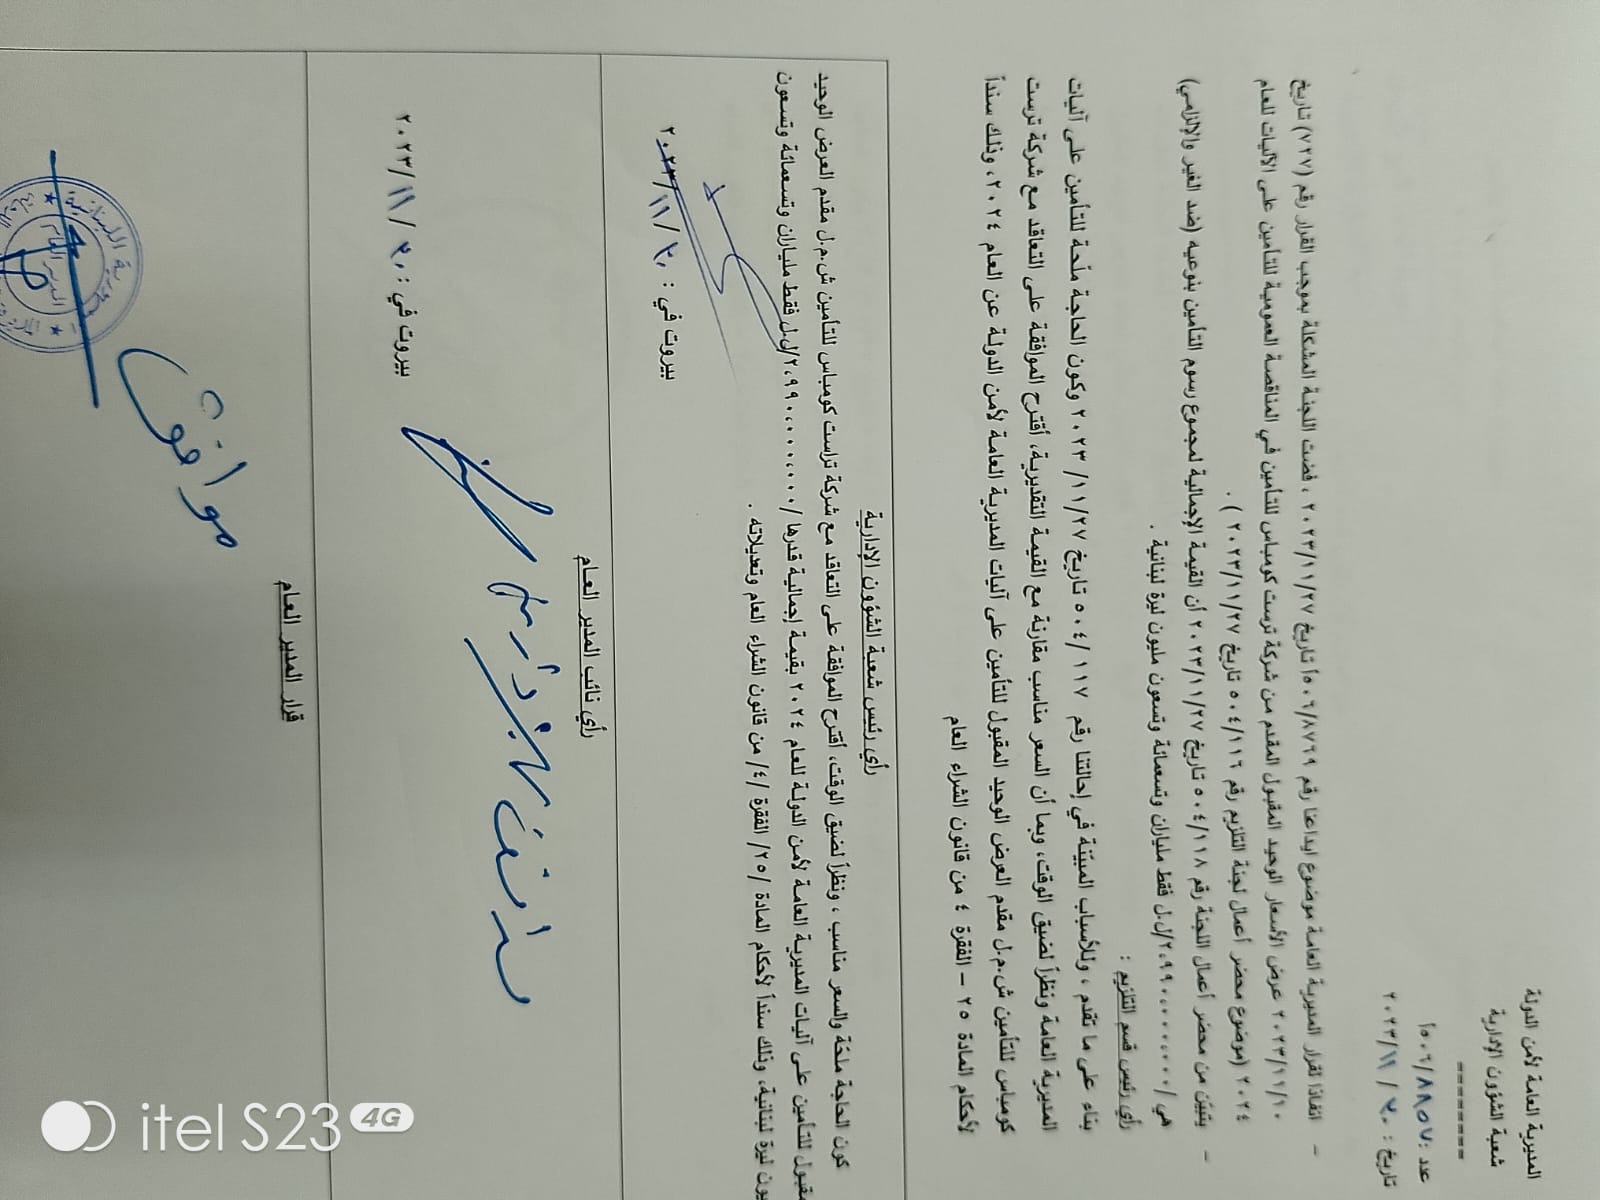 المديرية العامة لأمن الدولة
شعبة الشؤون الإدارية
--------
عدد : ٨٨٥٧/٥٠٦أ
تاريخ : ٣٠/ ١١/ ٢٠٢٣
- انفاذا لقرار المديرية العامة موضوع ايداعنا رقم ٨٧٦٩/٥٠٦أ تاريخ ٢٠٢٣/١١/٢٧ ، فضت اللجنة المشكلة بموجب القرار رقم (٧٢٧) تاريخ
٢٠٢٣/١١/١٠ عرض الأسعار الوحيد المقبول المقدم من شركة ترست كومباس للتأمين في المناقصة العمومية للتأمين على الآليات للعام
٢٠٢٤ (موضوع محضر أعمال لجنة التلزيم رقم ٥٠٤/١١٦ تاريخ ٢٠٢٣/١١/٢٧ ) .
- يتبيّن من محضر أعمال اللجنة رقم ٥٠٤/١١٨ تاريخ ٢٠٢٣/١١/٢٧ أن القيمة الإجمالية لمجموع رسوم التأمين بنوعيه (ضد الغير والإلزامي)
هي /٢،٩٩٠،٠٠٠،٠٠٠/ل.ل فقط ملياران وتسعمائة وتسعون مليون ليرة لبنانية .
رأي رئيس قسم التلزيم :
بناء على ما تقدم ، وللأسباب المبيّنة في إحالتنا رقم ٥٠٤/١١٧ تاريخ ٢٠٢٣/١١/٢٧ وكون الحاجة ملّحة للتأمين على آليات
المديرية العامة ونظراً لضيق الوقت، وبما أن السعر مناسب مقارنة مع القيمة التقديرية، أقترح الموافقة على التعاقد مع شركة ترست
كومباس للتأمين ش.م.ل مقدم العرض الوحيد المقبول للتأمين على آليات المديرية العامة لأمن الدولة عن العام ٢٠٢٤، وذلك سنداً
لأحكام المادة ٢٥ – الفقرة ٤ من قانون الشراء العام
رأي رئيس شعبة الشؤون الإدارية
كون الحاجة ملحّة والسعر مناسب ، ونظراً لضيق الوقت، أقترح الموافقة على التعاقد مع شركة تراست كومباس للتأمين ش.م.ل مقدم العرض الوحيد
مقبول للتأمين على آليات المديرية العامة لأمن الدولة للعام ٢٠٢٤ بقيمة إجمالية قدرها /٢،٩٩٠،٠٠٠،٠٠٠/ل.ل فقط ملياران وتسعمائة وتسعون
يون ليرة لبنانية، وذلك سنداً لأحكام المادة /٢٥/ الفقرة /٤/ من قانون الشراء العام وتعديلاته .
بيروت في : ٣٠/ ١١/ ٢٠٢٣
رأي نائب المدير العام
بيروت في : ٣٠/ ١١/ ٢٠٢٣
قرار المدير العام
موافق
المدير العام
itel S23 4G